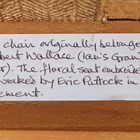 chair originally belonge
bert Wallace (Ian's Gran
r). The floral seat embroide
worked by Eric Puttock in
cement.